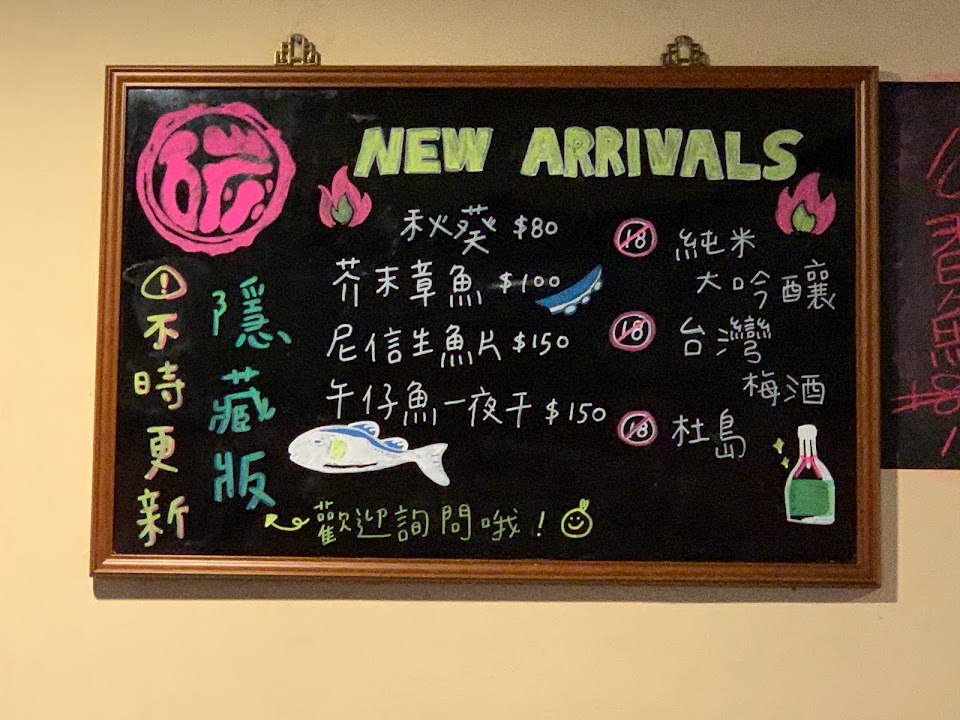 NEW ARRIVALS
秋葵 $80
芥末章魚 $100
尼信生魚片 $150
午仔魚一夜干 $150
18 純米
大吟釀
18 台灣
梅酒
18 杜島
! 不時更新
隱藏版
歡迎詢問哦!